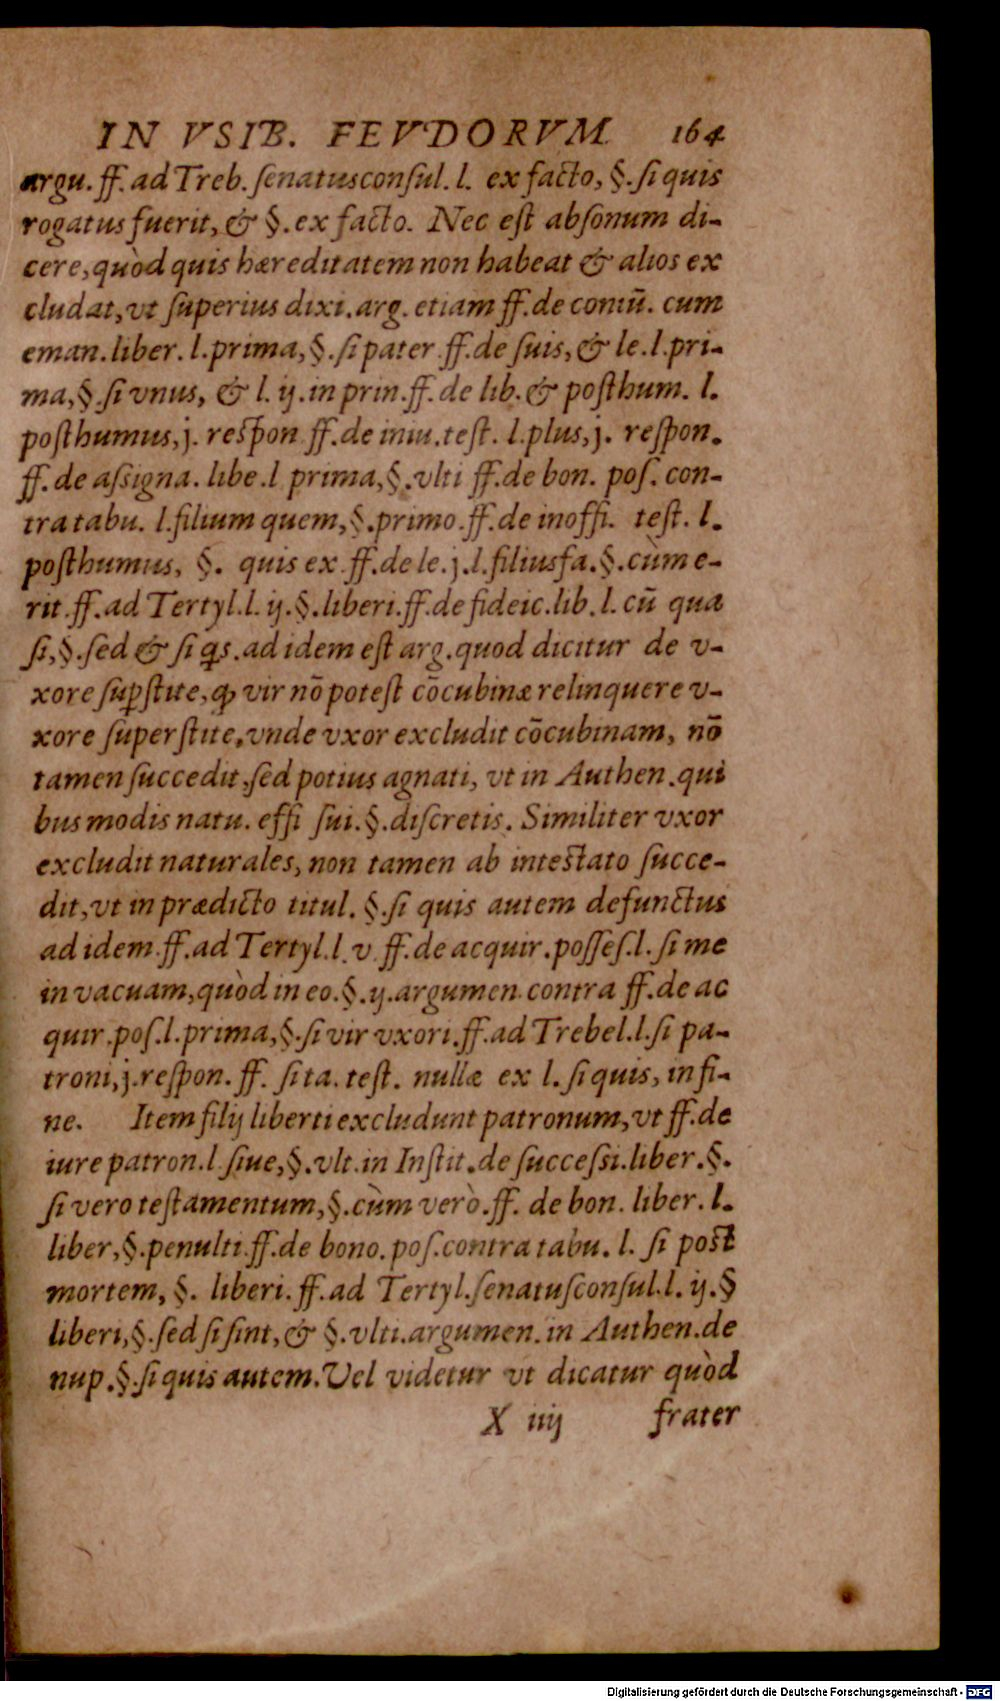 IN VSIB. FEVDORVM 164
argu. ff. ad Treb. ſenatusconſul. l. ex facto, §. ſi quis
rogatus fuerit, & §. ex facto. Nec eſt abſonum di-
cere, quòd quis hæreditatem non habeat & alios ex
cludat, vt ſuperius dixi. arg. etiam ff. de coniū. cum
eman. liber. l. prima, §. ſi pater ff. de ſuis, & le. l. pri-
ma, §. ſi vnus, & l. ij. in prin. ff. de lib. & poſthum. l.
poſthumus, j. reſpon ff. de iniu. teſt. l. plus, j. reſpon.
ff. de aſsigna. libe. l prima, §. vlti ff. de bon. poſ. con-
tra tabu. l. filium quem, §. primo. ff. de inoffi. teſt. l.
poſthumus, §. quis ex ff. de le. j. l. filiusfa. §. cùm e-
rit ff. ad Tertyl. l. ij. §. liberi. ff. de fideic. lib. l. cū qua
ſi, §. ſed & ſi q̄s. ad idem eſt arg. quod dicitur de v-
xore ſuꝑſtite, ꝙ vir nō poteſt cōcubinæ relinquere v-
xore ſuperſtite, vnde vxor excludit cōcubinam, nō
tamen ſuccedit, ſed potius agnati, vt in Authen. qui
bus modis natu. effi ſui. §. diſcretis. Similiter vxor
excludit naturales, non tamen ab inteſtato ſucce-
dit, vt in prædicto titul. §. ſi quis autem defunctus
ad idem ff. ad Tertyl. l. v ff. de acquir. poſſeſ. l. ſi me
in vacuam, quòd in eo. §. ij. argumen. contra ff. de ac
quir. poſ. l. prima, §. ſi vir vxori. ff. ad Trebel. l. ſi pa-
troni, j. reſpon. ff. ſi ta. teſt. nullæ ex l. ſi quis, in fi-
ne. Item filij liberti excludunt patronum, vt ff. de
iure patron. l ſiue, §. vlt. in Inſtit. de ſucceſsi. liber. §.
ſi vero teſtamentum, §. cùm verò. ff. de bon. liber. l.
liber, §. penulti. ff. de bono. poſ. contra tabu. l. ſi poſt
mortem, §. liberi. ff. ad Tertyl. ſenatuſconſul. l. ij. §
liberi, §. ſed ſi ſint, & §. vlti. argumen. in Authen. de
nup. §. ſi quis autem. Vel videtur vt dicatur quòd
X iiij frater
Digitalisierung gefördert durch die Deutsche Forschungsgemeinschaft - DFG